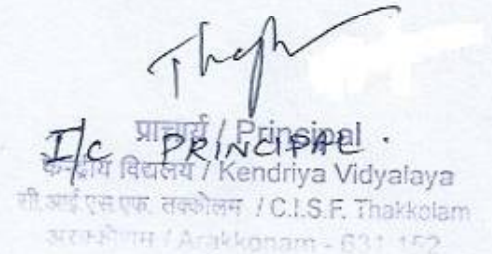 प्राचार्य / Principal
I/c PRINCIPAL.
केन्द्रीय विद्यालय / Kendriya Vidyalaya
सी.आई.एस.एफ. तक्कोलम / C.I.S.F. Thakkolam
अरक्कोणम / Arakkonam - 631 152